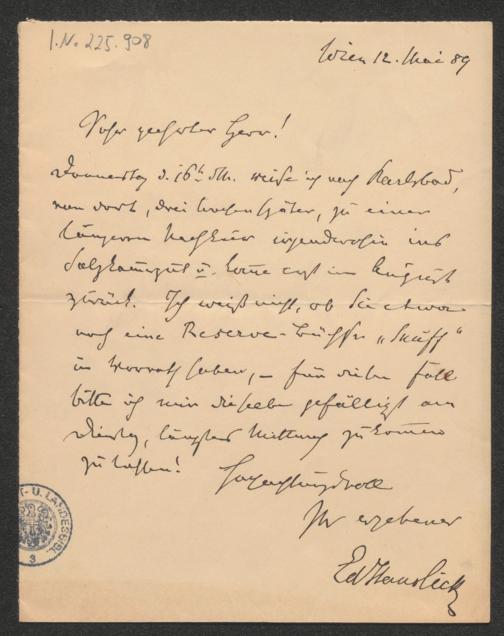 I.N. 225.908
Wien 12. Mai 89
Sehr geehrter Herr!
Donnerstag d. 16ᵗ dM. reise ich nach Karlsbad,
von dort, drei Wochen später, zu einer
längeren Nachkur irgendwohin ins
Salzkammergut u. komme erst im August
zurück. Ich weiß nicht, ob Sie etwa
noch eine Reserve-Büchse „Snuff"
in Vorrath haben, – für diesen Fall
bitte ich mir dieselbe gefälligst am
Dienstag, längstens Mittwoch zukommen
zu lassen!
Hochachtungsvoll
Ihr ergebener
EdHanslick
T- U. LANDESBIBL.
3